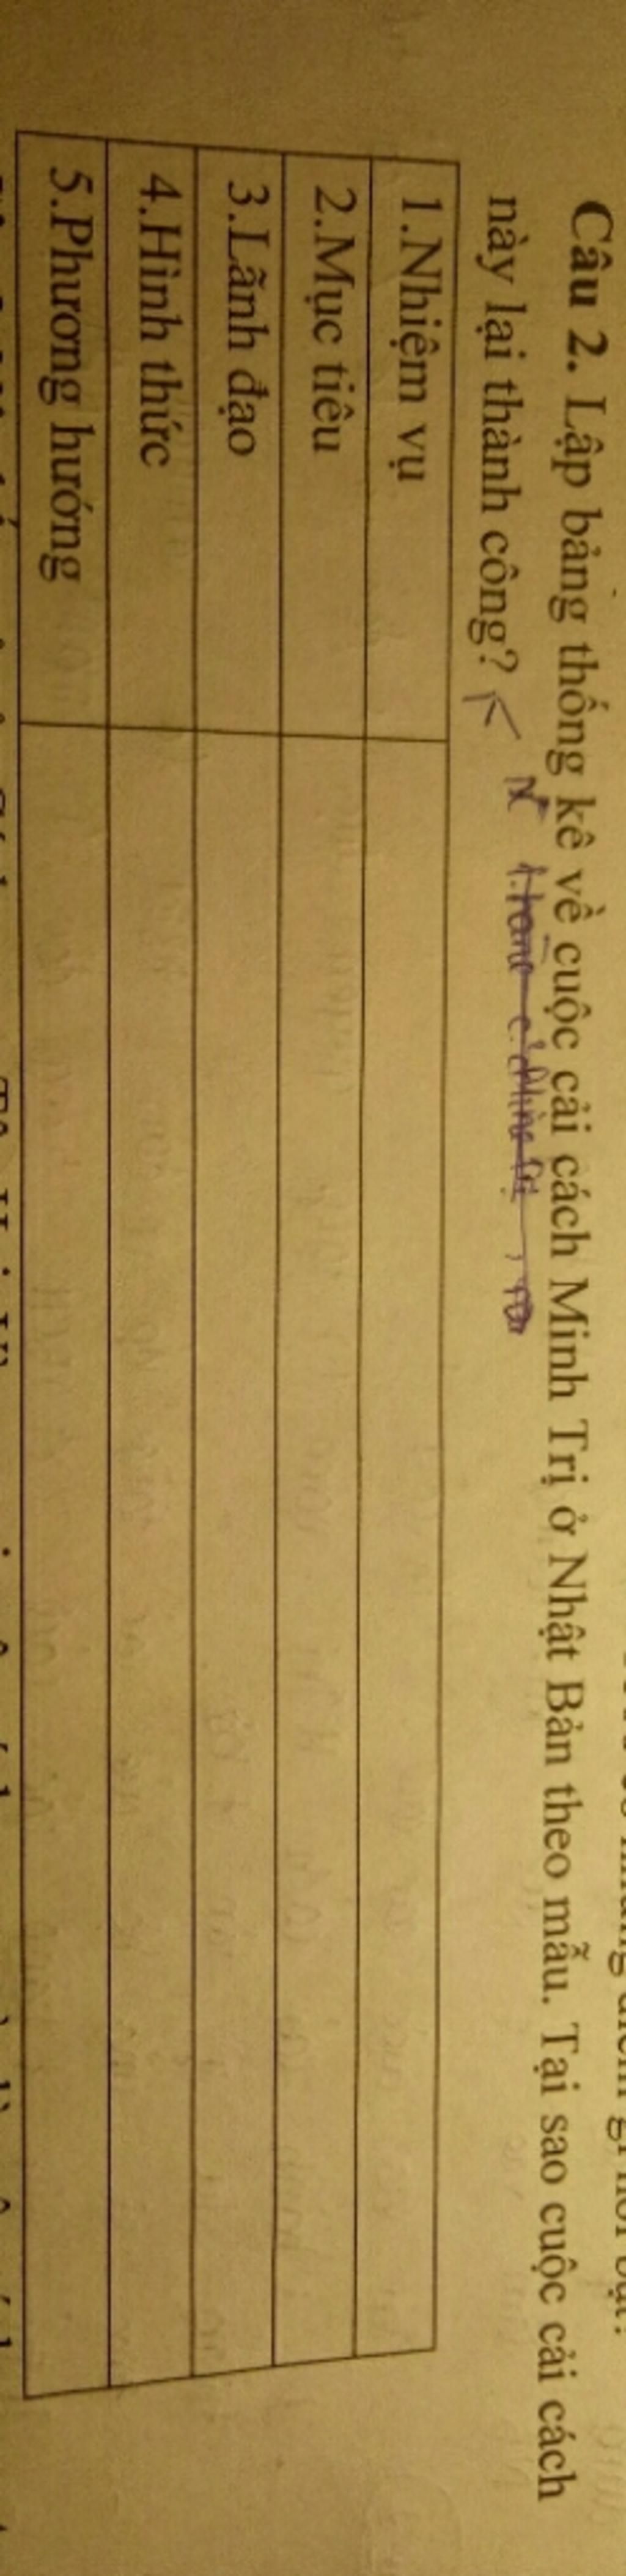 Câu 2. Lập bảng thống kê về cuộc cải cách Minh Trị ở Nhật Bản theo mẫu. Tại sao cuộc cải cách
này lại thành công?
1.Nhiệm vụ
2.Mục tiêu
3.Lãnh đạo
4.Hình thức
5.Phương hướng